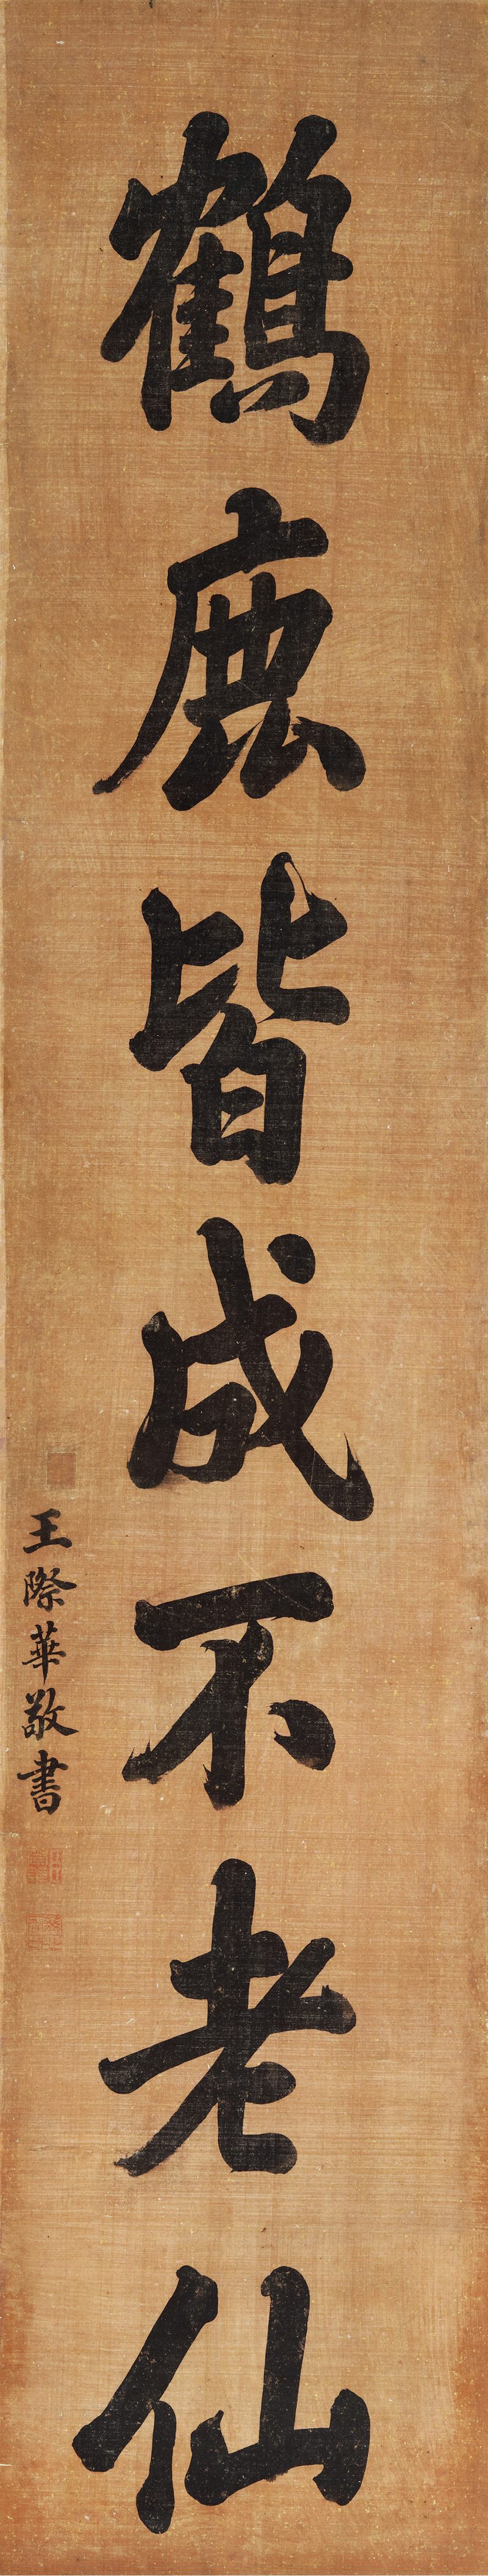 鶴鹿皆成不老仙
王際華敬書